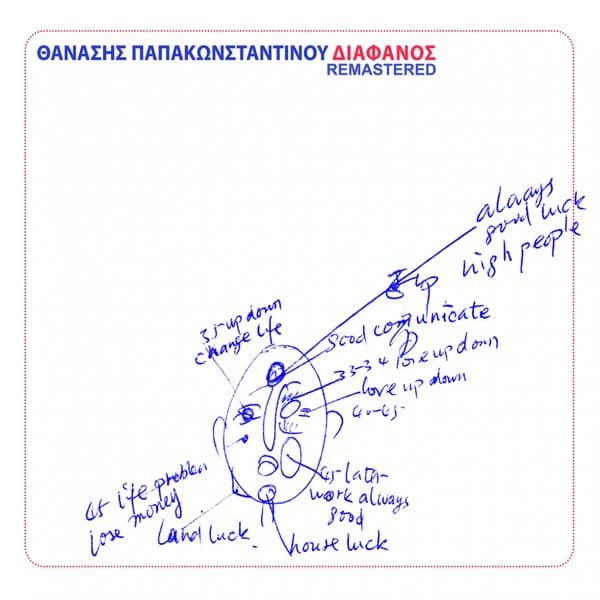 ΘΑΝΑΣΗΣ ΠΑΠΑΚΩΝΣΤΑΝΤΙΝΟΥ ΔΙΑΦΑΝΟΣ
REMASTERED
always
good luck
high people
up
good comunicate
35 up down
change life
33-34 love up down
love up down
40-45
45 life problem
lose money
45 later
work always
good
land luck.
house luck